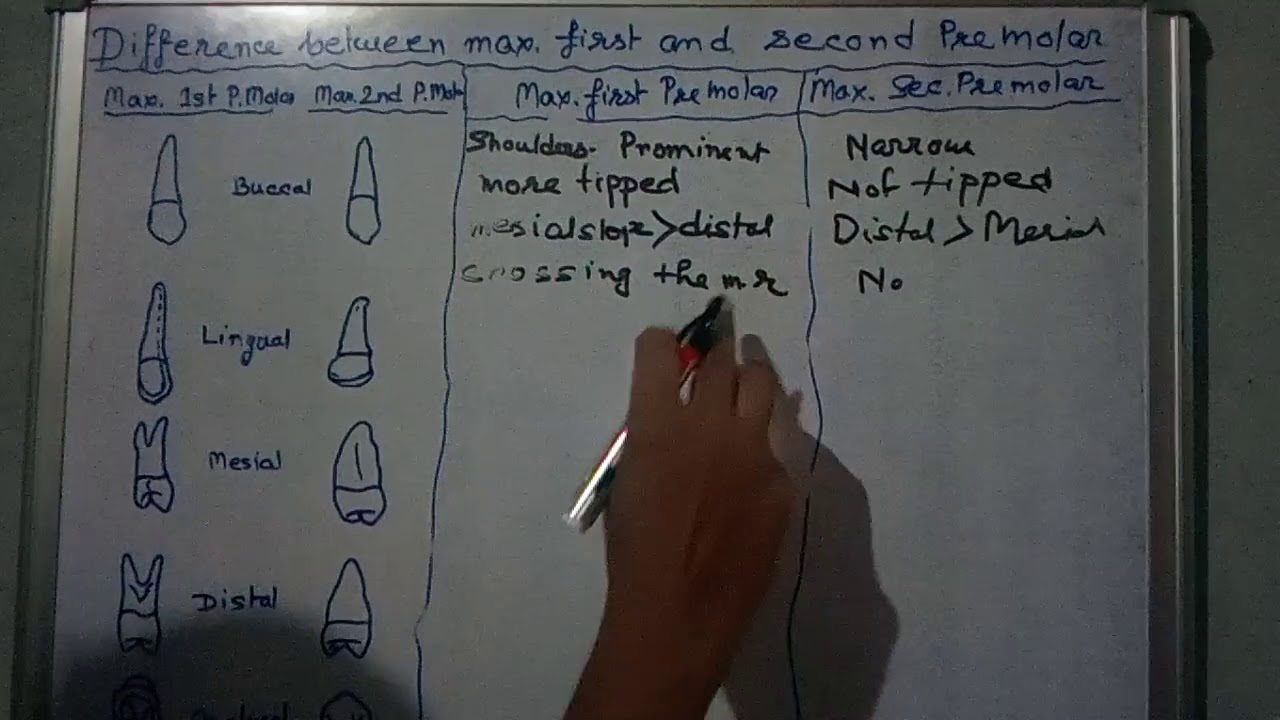 Difference between max. first and second Premolar
Max. 1st P.Molar Max. 2nd P.Molar Max. first Premolar Max. Sec. Premolar
Buccal
Shoulders- Prominent Narrow
more tipped Not tipped
mesial slope > distal Distal > Mesial
crossing the mr No
Lingual
Mesial
Distal